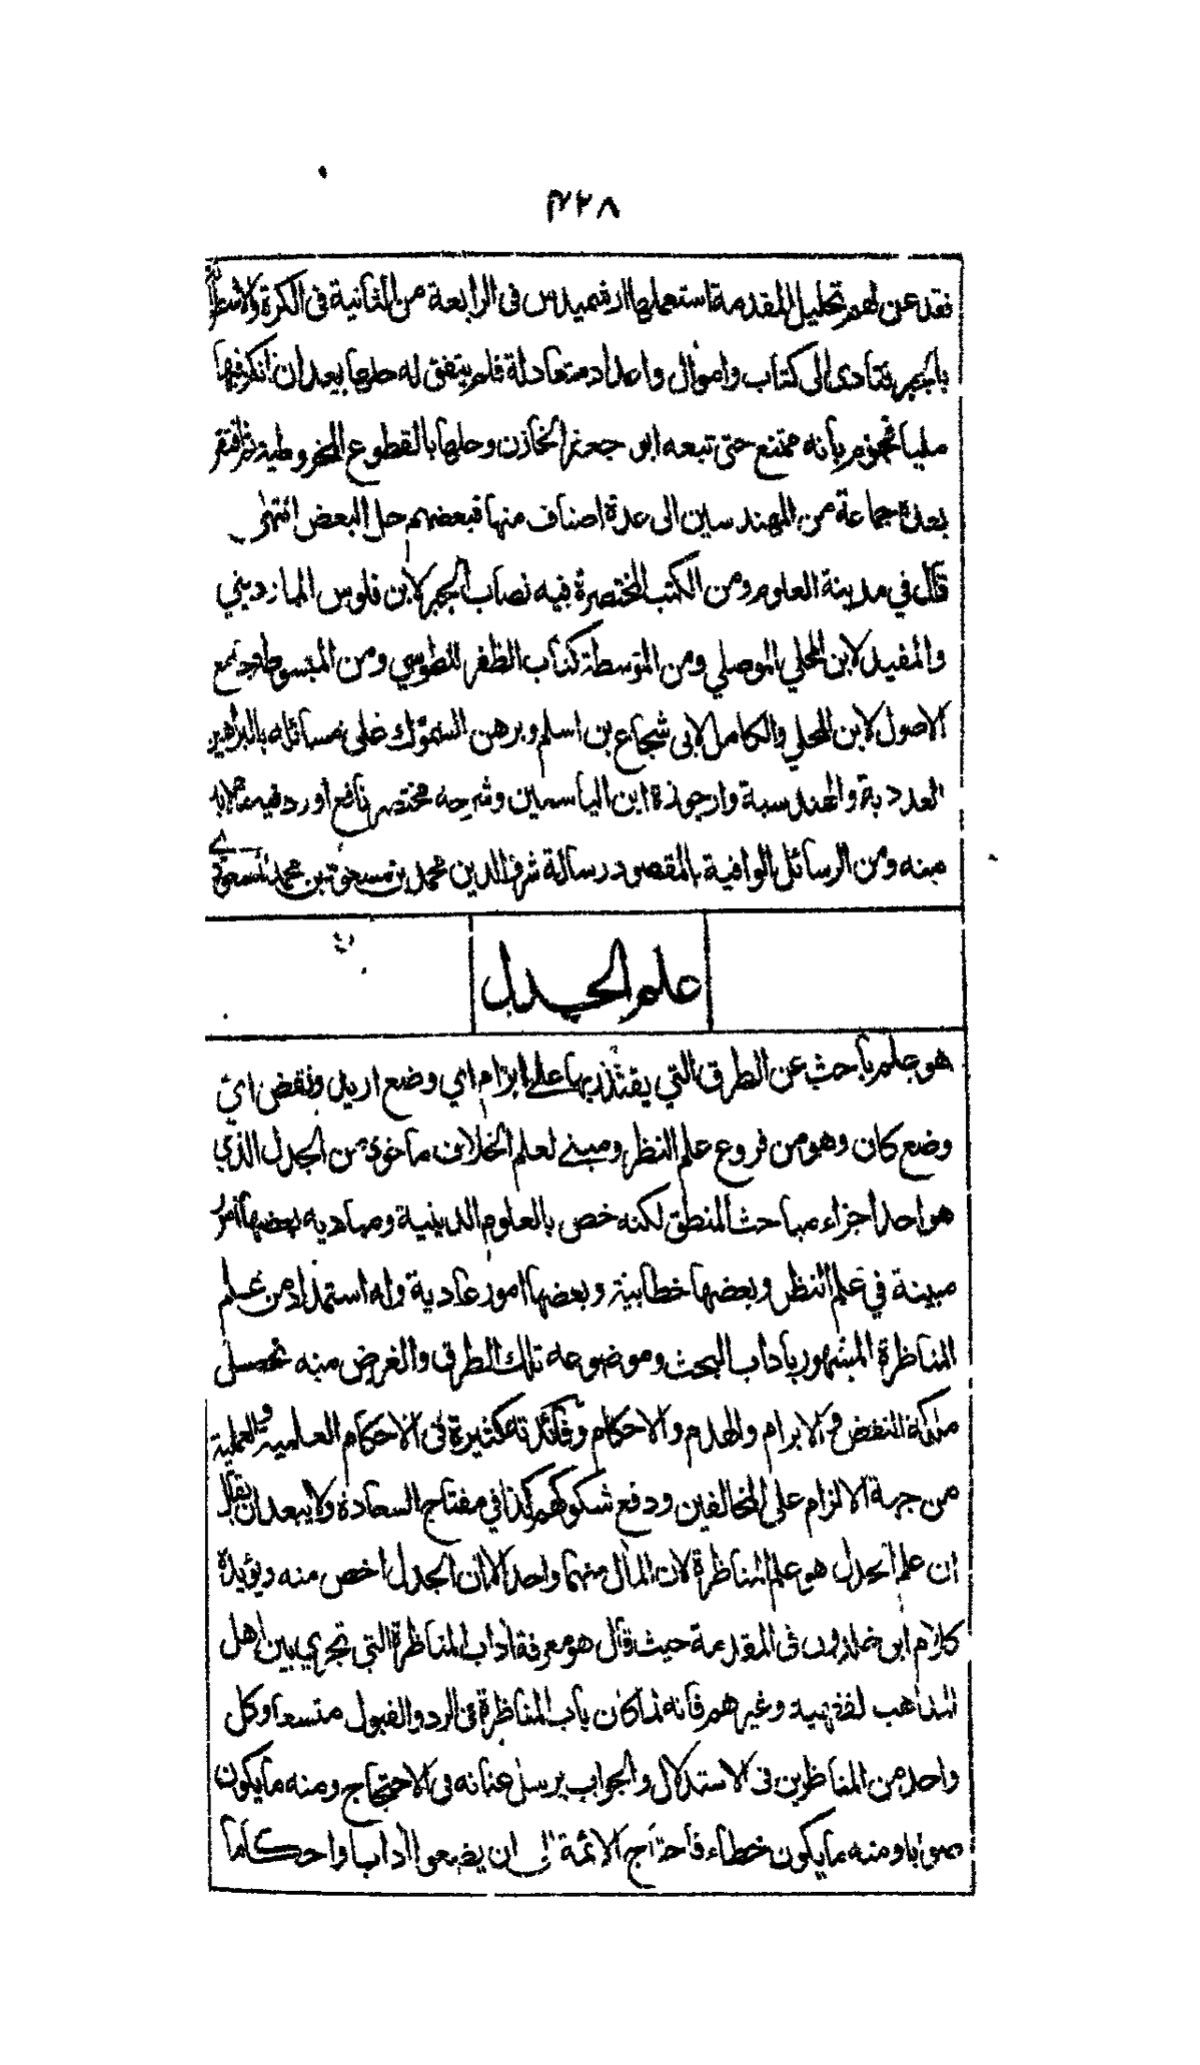 ٣٢٨
فقد عن لهم تحليل المقدمة استعملها ارشميدس في الرابعة من الثانية في الكرة والاسطوانة
بالجبر فتادى الى كتاب واموال واعداد متعادلة فلم يتفق له حلها بعد ان افكر فيها
مليا فجزم بانه ممتنع حتى تبعه ابو جعفر الخازن وحلها بالقطوع المخروطية ثم افتقر
بعده جماعة من المهندسين الى عدة اصناف منها فبعضهم حل البعض انتهى
قال في مدينة العلوم ومن الكتب المختصرة فيه نصاب الجبر لابن فلوس المارديني
والمفيد لابن المحلي الموصلي ومن المتوسطة كتاب الظفر للطوسي ومن المبسوطة جامع
الاصول لابن المحلي والكامل لابي شجاع بن اسلم وبرهن السموئل على مسائله بالبراهين
العددية والهندسية وارجوزة ابن الياسمين وشرحه مختصر نافع اورد فيه ما لا بد
منه ومن الرسائل الوافية بالمقصود رسالة شرف الدين محمد بن مسعود بن محمد المسعودي
علم الجدل
هو علم باحث عن الطرق التي يقتدر بها على ابرام اي وضع اريد ونقض اي
وضع كان وهو من فروع علم النظر ومبنى لعلم الخلاف ماخوذ من الجدل الذي
هو احد اجزاء مباحث المنطق لكنه خص بالعلوم الدينية ومباديه بعضها امور
مبينة في علم النظر وبعضها خطابية وبعضها امور عادية وله استمداد من علم
المناظرة المشهور باداب البحث وموضوعه تلك الطرق والغرض منه تحصيل
ملكة النقض والابرام والهدم والاحكام وفائدته كثيرة في الاحكام العلمية والعملية
من جهة الالزام على المخالفين ودفع شكوكهم كذا في مفتاح السعادة ولا يبعد ان يقال
ان علم الجدل هو علم المناظرة لان المآل منهما واحد الا ان الجدل اخص منه ويؤيده
كلام ابن خلدون في المقدمة حيث قال هو معرفة اداب المناظرة التي تجري بين اهل
المذاهب الفقهية وغيرهم فانه لما كان باب المناظرة في الرد والقبول متسعا وكل
واحد من المناظرين في الاستدلال والجواب يرسل عنانه في الاحتجاج ومنه ما يكون
صوابا ومنه ما يكون خطاء فاحتاج الائمة الى ان يضعوا آدابا واحكاما